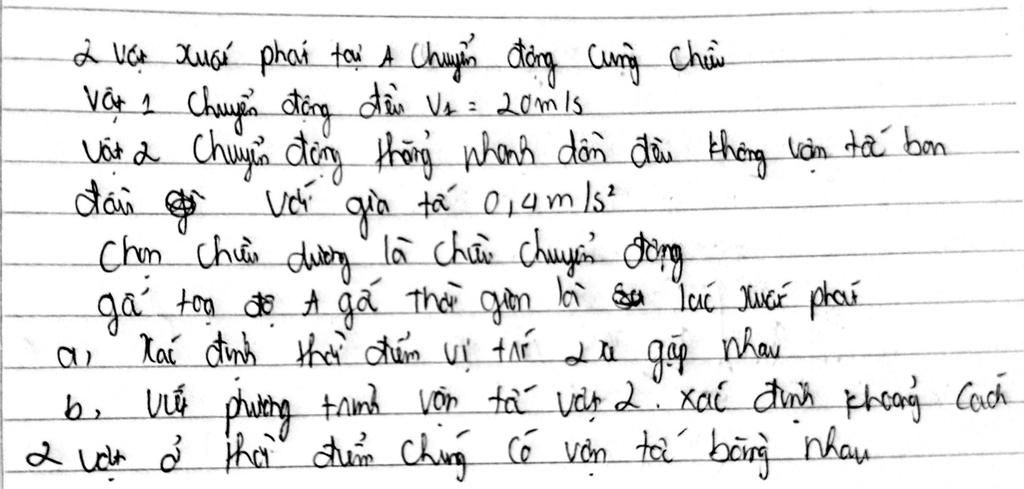 2 vật xuất phát tại A chuyển động cùng chiều
Vật 1 chuyển động đều V₁ = 20m/s
Vật 2 chuyển động thẳng nhanh dần đều không vận tốc ban
đầu với gia tốc 0,4m/s²
Chọn chiều dương là chiều chuyển động
gốc toạ độ A gốc thời gian là lúc xuất phát
a, Xác định thời điểm vị trí 2 xe gặp nhau
b, Viết phương trình vận tốc vật 2. xác định khoảng cách
2 vật ở thời điểm chúng có vận tốc bằng nhau